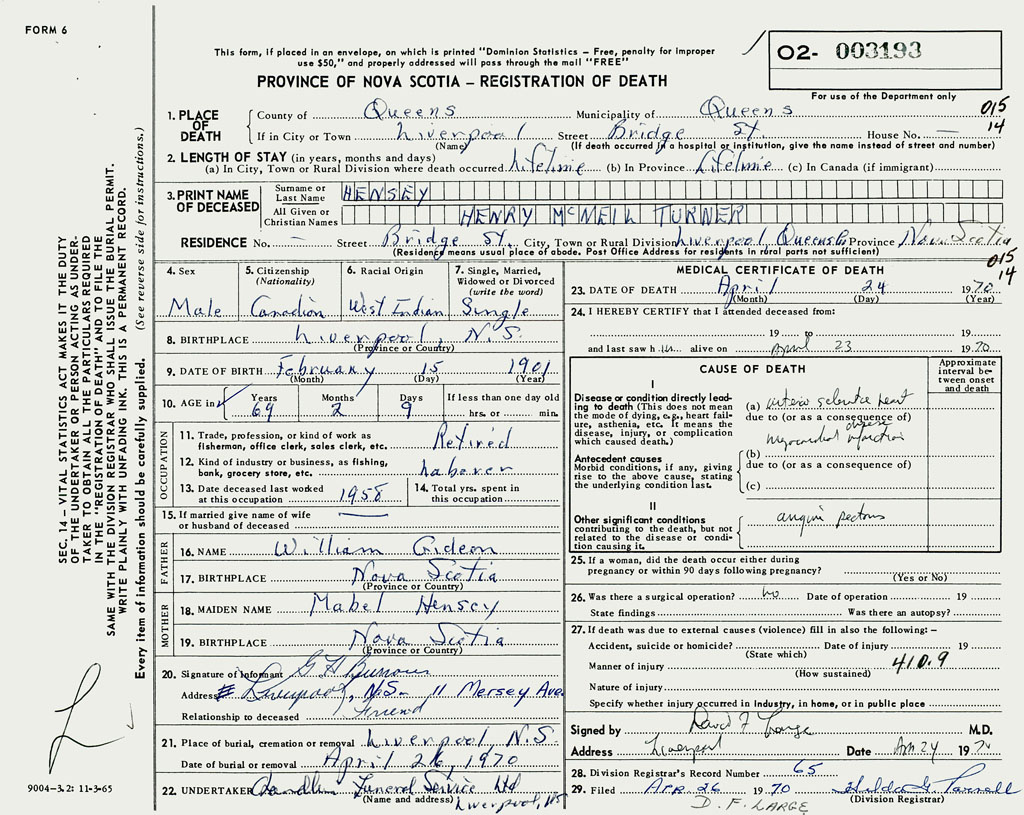 FORM 6
This form, if placed in an envelope, on which is printed "Dominion Statistics – Free, penalty for improper
use $50," and properly addressed will pass through the mail "FREE"
02- 003193
PROVINCE OF NOVA SCOTIA – REGISTRATION OF DEATH
For use of the Department only
015
14
1. PLACE OF DEATH
County of Queens Municipality of Queens
If in City or Town Liverpool Street Bridge St. House No. —
(Name) (If death occurred in a hospital or institution, give the name instead of street and number)
2. LENGTH OF STAY (in years, months and days)
(a) In City, Town or Rural Division where death occurred Lifetime (b) In Province Lifetime (c) In Canada (if immigrant)
3. PRINT NAME OF DECEASED
Surname or Last Name HENSEY
All Given or Christian Names HENRY McNEIL TURNER
RESIDENCE No. — Street Bridge St. City, Town or Rural Division Liverpool Queens Province Nova Scotia
(Residence means usual place of abode. Post Office Address for residents in rural parts not sufficient)
015
14
4. Sex
Male
5. Citizenship
(Nationality)
Canadian
6. Racial Origin
West Indian
7. Single, Married,
Widowed or Divorced
(write the word)
Single
8. BIRTHPLACE Liverpool, N.S.
(Province or Country)
9. DATE OF BIRTH February 15 1901
(Month) (Day) (Year)
10. AGE in Years Months Days If less than one day old
69 2 9 hrs. or min.
OCCUPATION
11. Trade, profession, or kind of work as
fisherman, office clerk, sales clerk, etc. Retired
12. Kind of industry or business, as fishing,
bank, grocery store, etc. Laborer
13. Date deceased last worked
at this occupation 1958
14. Total yrs. spent in
this occupation
15. If married give name of wife
or husband of deceased —
FATHER
16. NAME William Gideon
17. BIRTHPLACE Nova Scotia
(Province or Country)
MOTHER
18. MAIDEN NAME Mabel Hensey
19. BIRTHPLACE Nova Scotia
(Province or Country)
20. Signature of Informant G H
Address Liverpool, N.S. 11 Mersey Ave
Relationship to deceased Friend
21. Place of burial, cremation or removal Liverpool N.S.
Date of burial or removal April 26, 1970
22. UNDERTAKER Funeral Service Ltd
(Name and address) Liverpool, NS
MEDICAL CERTIFICATE OF DEATH
23. DATE OF DEATH April 24 1970
(Month) (Day) (Year)
24. I HEREBY CERTIFY that I attended deceased from:
19 to 19
and last saw h im alive on April 23 1970
CAUSE OF DEATH
Approximate
interval be-
tween onset
and death
I
Disease or condition directly lead-
ing to death (This does not mean
the mode of dying, e.g., heart fail-
ure, asthenia, etc. It means the
disease, injury, or complication
which caused death.)
(a) arterio sclerotic heart
due to (or as a consequence of)
disease
myocardial infarction
Antecedent causes
Morbid conditions, if any, giving
rise to the above cause, stating
the underlying condition last.
(b)
due to (or as a consequence of)
(c)
II
Other significant conditions
contributing to the death, but not
related to the disease or condi-
tion causing it.
angina pectoris
25. If a woman, did the death occur either during
pregnancy or within 90 days following pregnancy?
(Yes or No)
26. Was there a surgical operation? no Date of operation 19
State findings Was there an autopsy?
27. If death was due to external causes (violence) fill in also the following: –
Accident, suicide or homicide? Date of injury 19
(State which)
410.9
Manner of injury
(How sustained)
Nature of injury
Specify whether injury occurred in industry, in home, or in public place
Signed by David F Large M.D.
Address Liverpool Date Apr 24 1970
28. Division Registrar's Record Number 65
29. Filed Apr. 26 1970 Hilda G. Parnell
D. F. LARGE (Division Registrar)
SEC. 14 – VITAL STATISTICS ACT MAKES IT THE DUTY
OF THE UNDERTAKER OR PERSON ACTING AS UNDER-
TAKER TO OBTAIN ALL THE PARTICULARS REQUIRED
IN THE "REGISTRATION OF DEATH" AND TO FILE THE
SAME WITH THE DIVISION REGISTRAR WHO SHALL ISSUE THE BURIAL PERMIT.
WRITE PLAINLY WITH UNFADING INK. THIS IS A PERMANENT RECORD.
Every item of information should be carefully supplied. (See reverse side for instructions.)
9004-3.2: 11-3-65